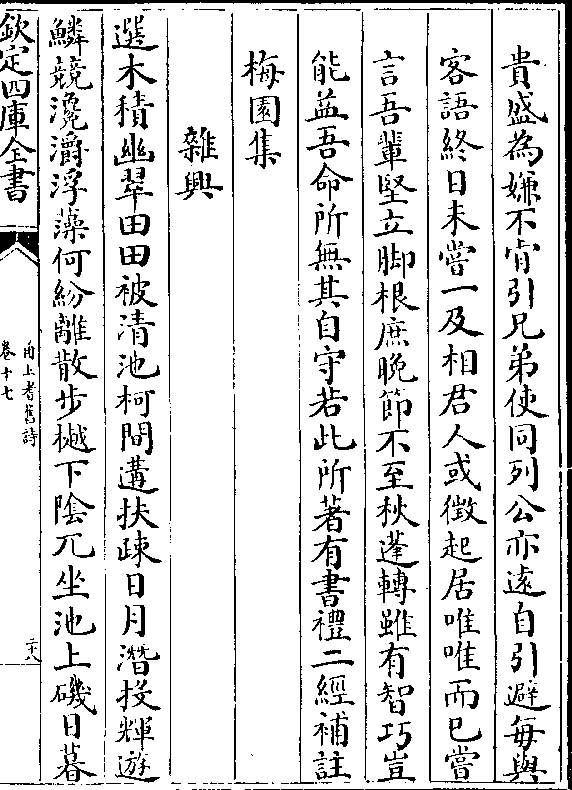 貴盛為嫌不肯引兄弟使同列公亦遠自引避每與
客語終日未嘗一及相君人或徵起居唯唯而已嘗
言吾輩堅立脚根庶晚節不至秋蓬轉雖有智巧豈
能益吾命所無其自守若此所著有書禮二經補註
梅園集
雜興
選木積幽翠田田被清池柯間遘扶疎日月潛投輝遊
鱗競瀺灂浮藻何紛離散步樾下陰兀坐池上磯日暮
欽定四庫全書
甬上耆舊詩
卷十七
二十八